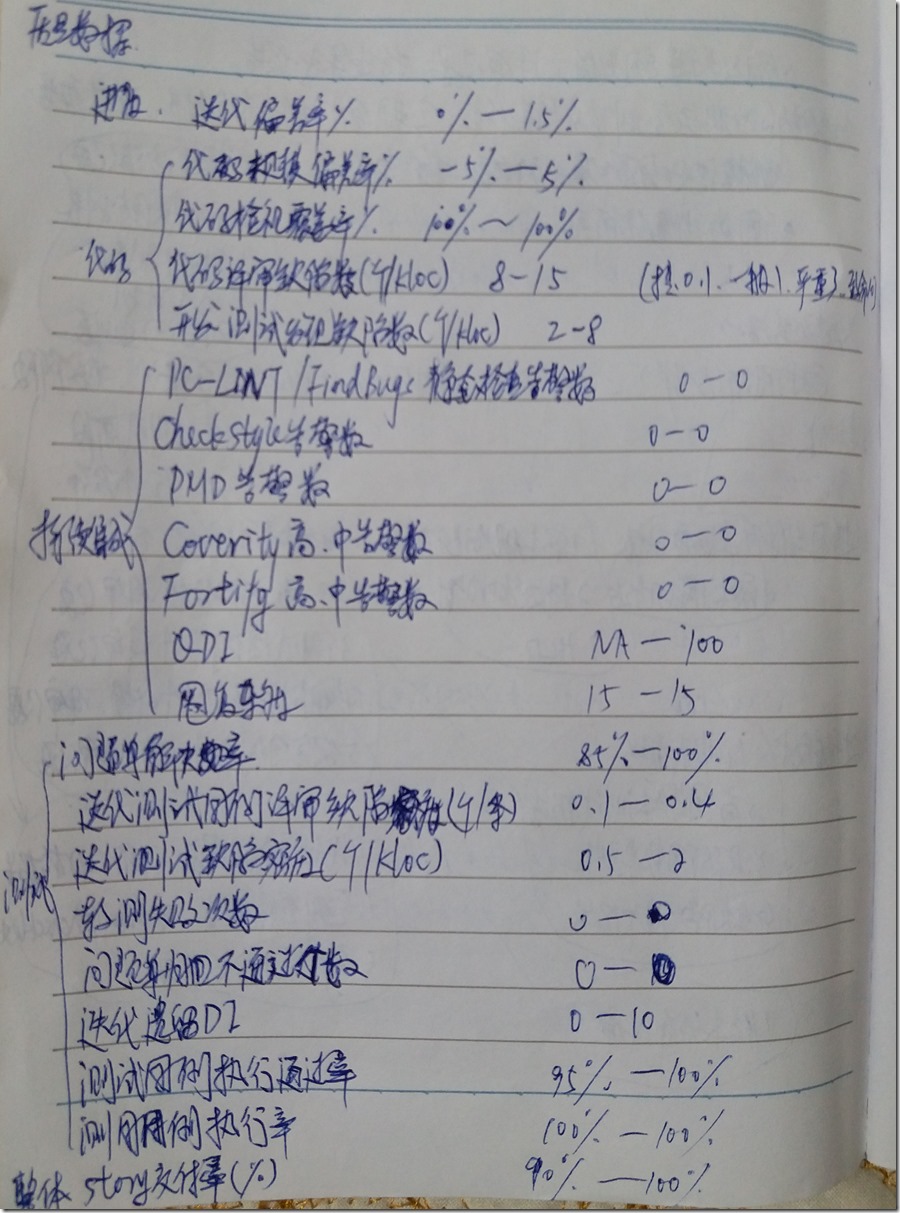 质量数据
进度. 迭代偏差率% 0%—1.5%
代码规模偏差率% -5%—5%
代码检视覆盖率% 100%~100%
代码 代码评审缺陷数(个/kloc) 8-15 (提示0.1、一般1、严重3、致命10)
开发测试发现缺陷数(个/kloc) 2-8
PC-LINT/FindBugs静态检查告警数 0—0
Checkstyle告警数 0—0
PMD告警数 0—0
持续集成 Coverity高.中告警数 0—0
Fortify高.中告警数 0—0
QDI NA—100
圈复杂度 15—15
问题单解决率 85%—100%
迭代测试用例评审缺陷(个/条) 0.1—0.4
迭代测试缺陷密度(个/kloc) 0.5—2
测试 转测失败次数 0—
问题单归回不通过数 0—
迭代遗留DI 0—10
测试用例执行通过率 95%—100%
测用用例执行率 100%—100%
整体 story交付率(%) 90%—100%